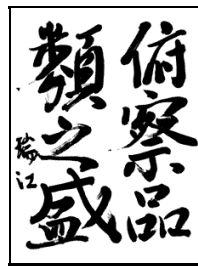 俯察品
類之盛
瑞江